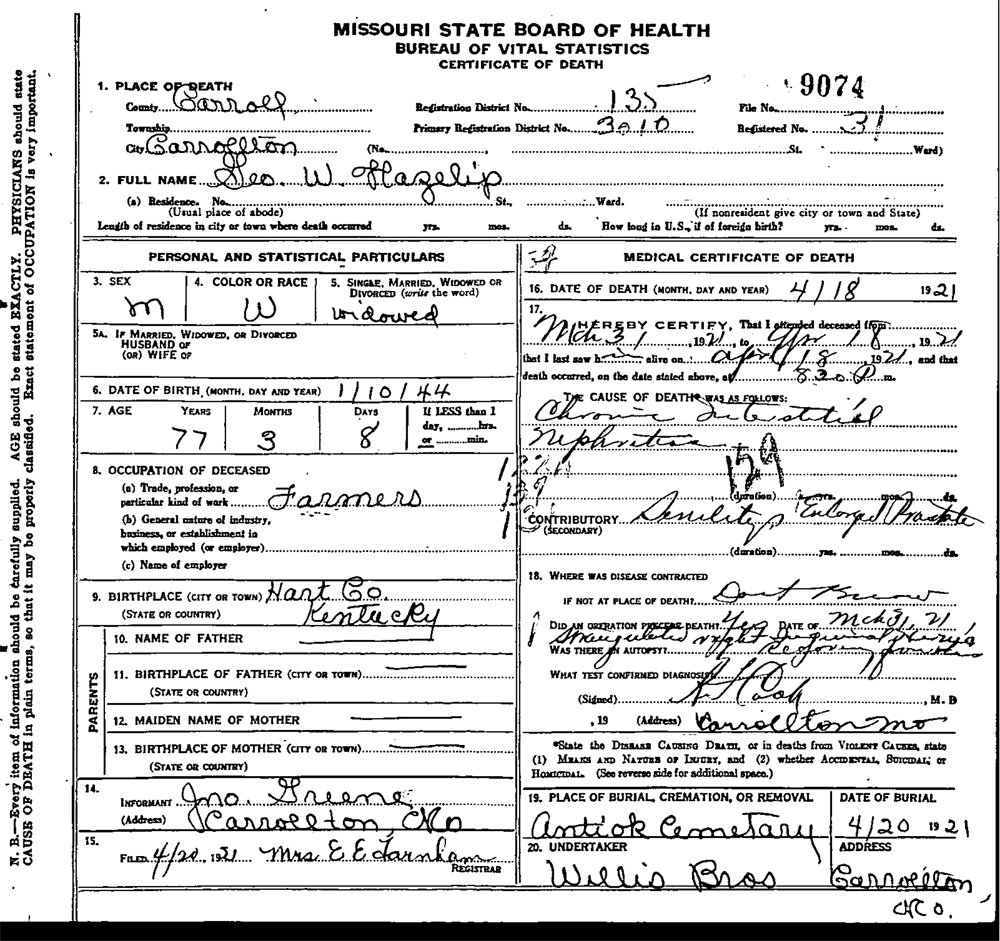 MISSOURI STATE BOARD OF HEALTH
BUREAU OF VITAL STATISTICS
CERTIFICATE OF DEATH
1. PLACE OF DEATH
County Carroll Registration District No. 135 File No. 9074
Township Primary Registration District No. 3010 Registered No. 31
City Carrollton (No. , St. Ward)
2. FULL NAME Geo. W. Hazelip
(a) Residence. No. St., Ward.
(Usual place of abode) (If nonresident give city or town and State)
Length of residence in city or town where death occurred yrs. mos. ds. How long in U.S., if of foreign birth? yrs. mos. ds.
PERSONAL AND STATISTICAL PARTICULARS
3. SEX 4. COLOR OR RACE 5. SINGLE, MARRIED, WIDOWED OR
DIVORCED (write the word)
M W widowed
5A. IF MARRIED, WIDOWED, OR DIVORCED
HUSBAND OF
(OR) WIFE OF
6. DATE OF BIRTH (MONTH, DAY AND YEAR) 1/10/44
7. AGE YEARS MONTHS DAYS If LESS than 1
day, hrs.
77 3 8 or min.
8. OCCUPATION OF DECEASED
(a) Trade, profession, or
particular kind of work Farmers
(b) General nature of industry,
business, or establishment in
which employed (or employer)
(c) Name of employer
9. BIRTHPLACE (CITY OR TOWN) Hart Co.
(STATE OR COUNTRY) Kentucky
PARENTS
10. NAME OF FATHER
11. BIRTHPLACE OF FATHER (CITY OR TOWN)
(STATE OR COUNTRY)
12. MAIDEN NAME OF MOTHER
13. BIRTHPLACE OF MOTHER (CITY OR TOWN)
(STATE OR COUNTRY)
14.
INFORMANT Jno. Greene
(Address) Carrollton Mo
15.
FILED 4/20, 1921 Mrs E E Farnham
REGISTRAR
MEDICAL CERTIFICATE OF DEATH
16. DATE OF DEATH (MONTH, DAY AND YEAR) 4/18 1921
17.
I HEREBY CERTIFY, That I attended deceased from
Mch 31, 1921, to Apr 18, 1921
that I last saw him alive on April 18, 1921, and that
death occurred, on the date stated above, at 830 P m.
THE CAUSE OF DEATH* WAS AS FOLLOWS:
Chronic Interstitial
Nephritis
129
(duration) yrs. mos. ds.
CONTRIBUTORY Senility Enlarged Prostate
(SECONDARY)
(duration) yrs. mos. ds.
18. WHERE WAS DISEASE CONTRACTED
IF NOT AT PLACE OF DEATH? Dont Know
DID AN OPERATION PRECEDE DEATH? Yes DATE OF Mch 31, 21
Strangulated right Inguinal
WAS THERE AN AUTOPSY?
WHAT TEST CONFIRMED DIAGNOSIS?
(Signed) Cook, M. D
, 19 (Address) Carrollton Mo
*State the DISEASE CAUSING DEATH, or in deaths from VIOLENT CAUSES, state
(1) MEANS AND NATURE OF INJURY, and (2) whether ACCIDENTAL, SUICIDAL, or
HOMICIDAL. (See reverse side for additional space.)
19. PLACE OF BURIAL, CREMATION, OR REMOVAL DATE OF BURIAL
Antiok Cemetary 4/20 1921
20. UNDERTAKER ADDRESS
Willis Bros Carrollton
Mo.
N. B.—Every item of information should be carefully supplied. AGE should be stated EXACTLY. PHYSICIANS should state
CAUSE OF DEATH in plain terms, so that it may be properly classified. Exact statement of OCCUPATION is very important.